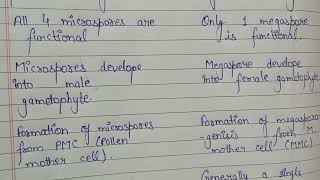 All 4 microspores are
functional
Microspores develope
into male
gamotophyte.
Formation of microspores
from PMC (Pollen
mother cell).
Only 1 megaspore
is functional.
Megaspore develope
into female gamotophyte
Formation of megaspor
-genisis from M.
mother cell (MMC)
Generally a single